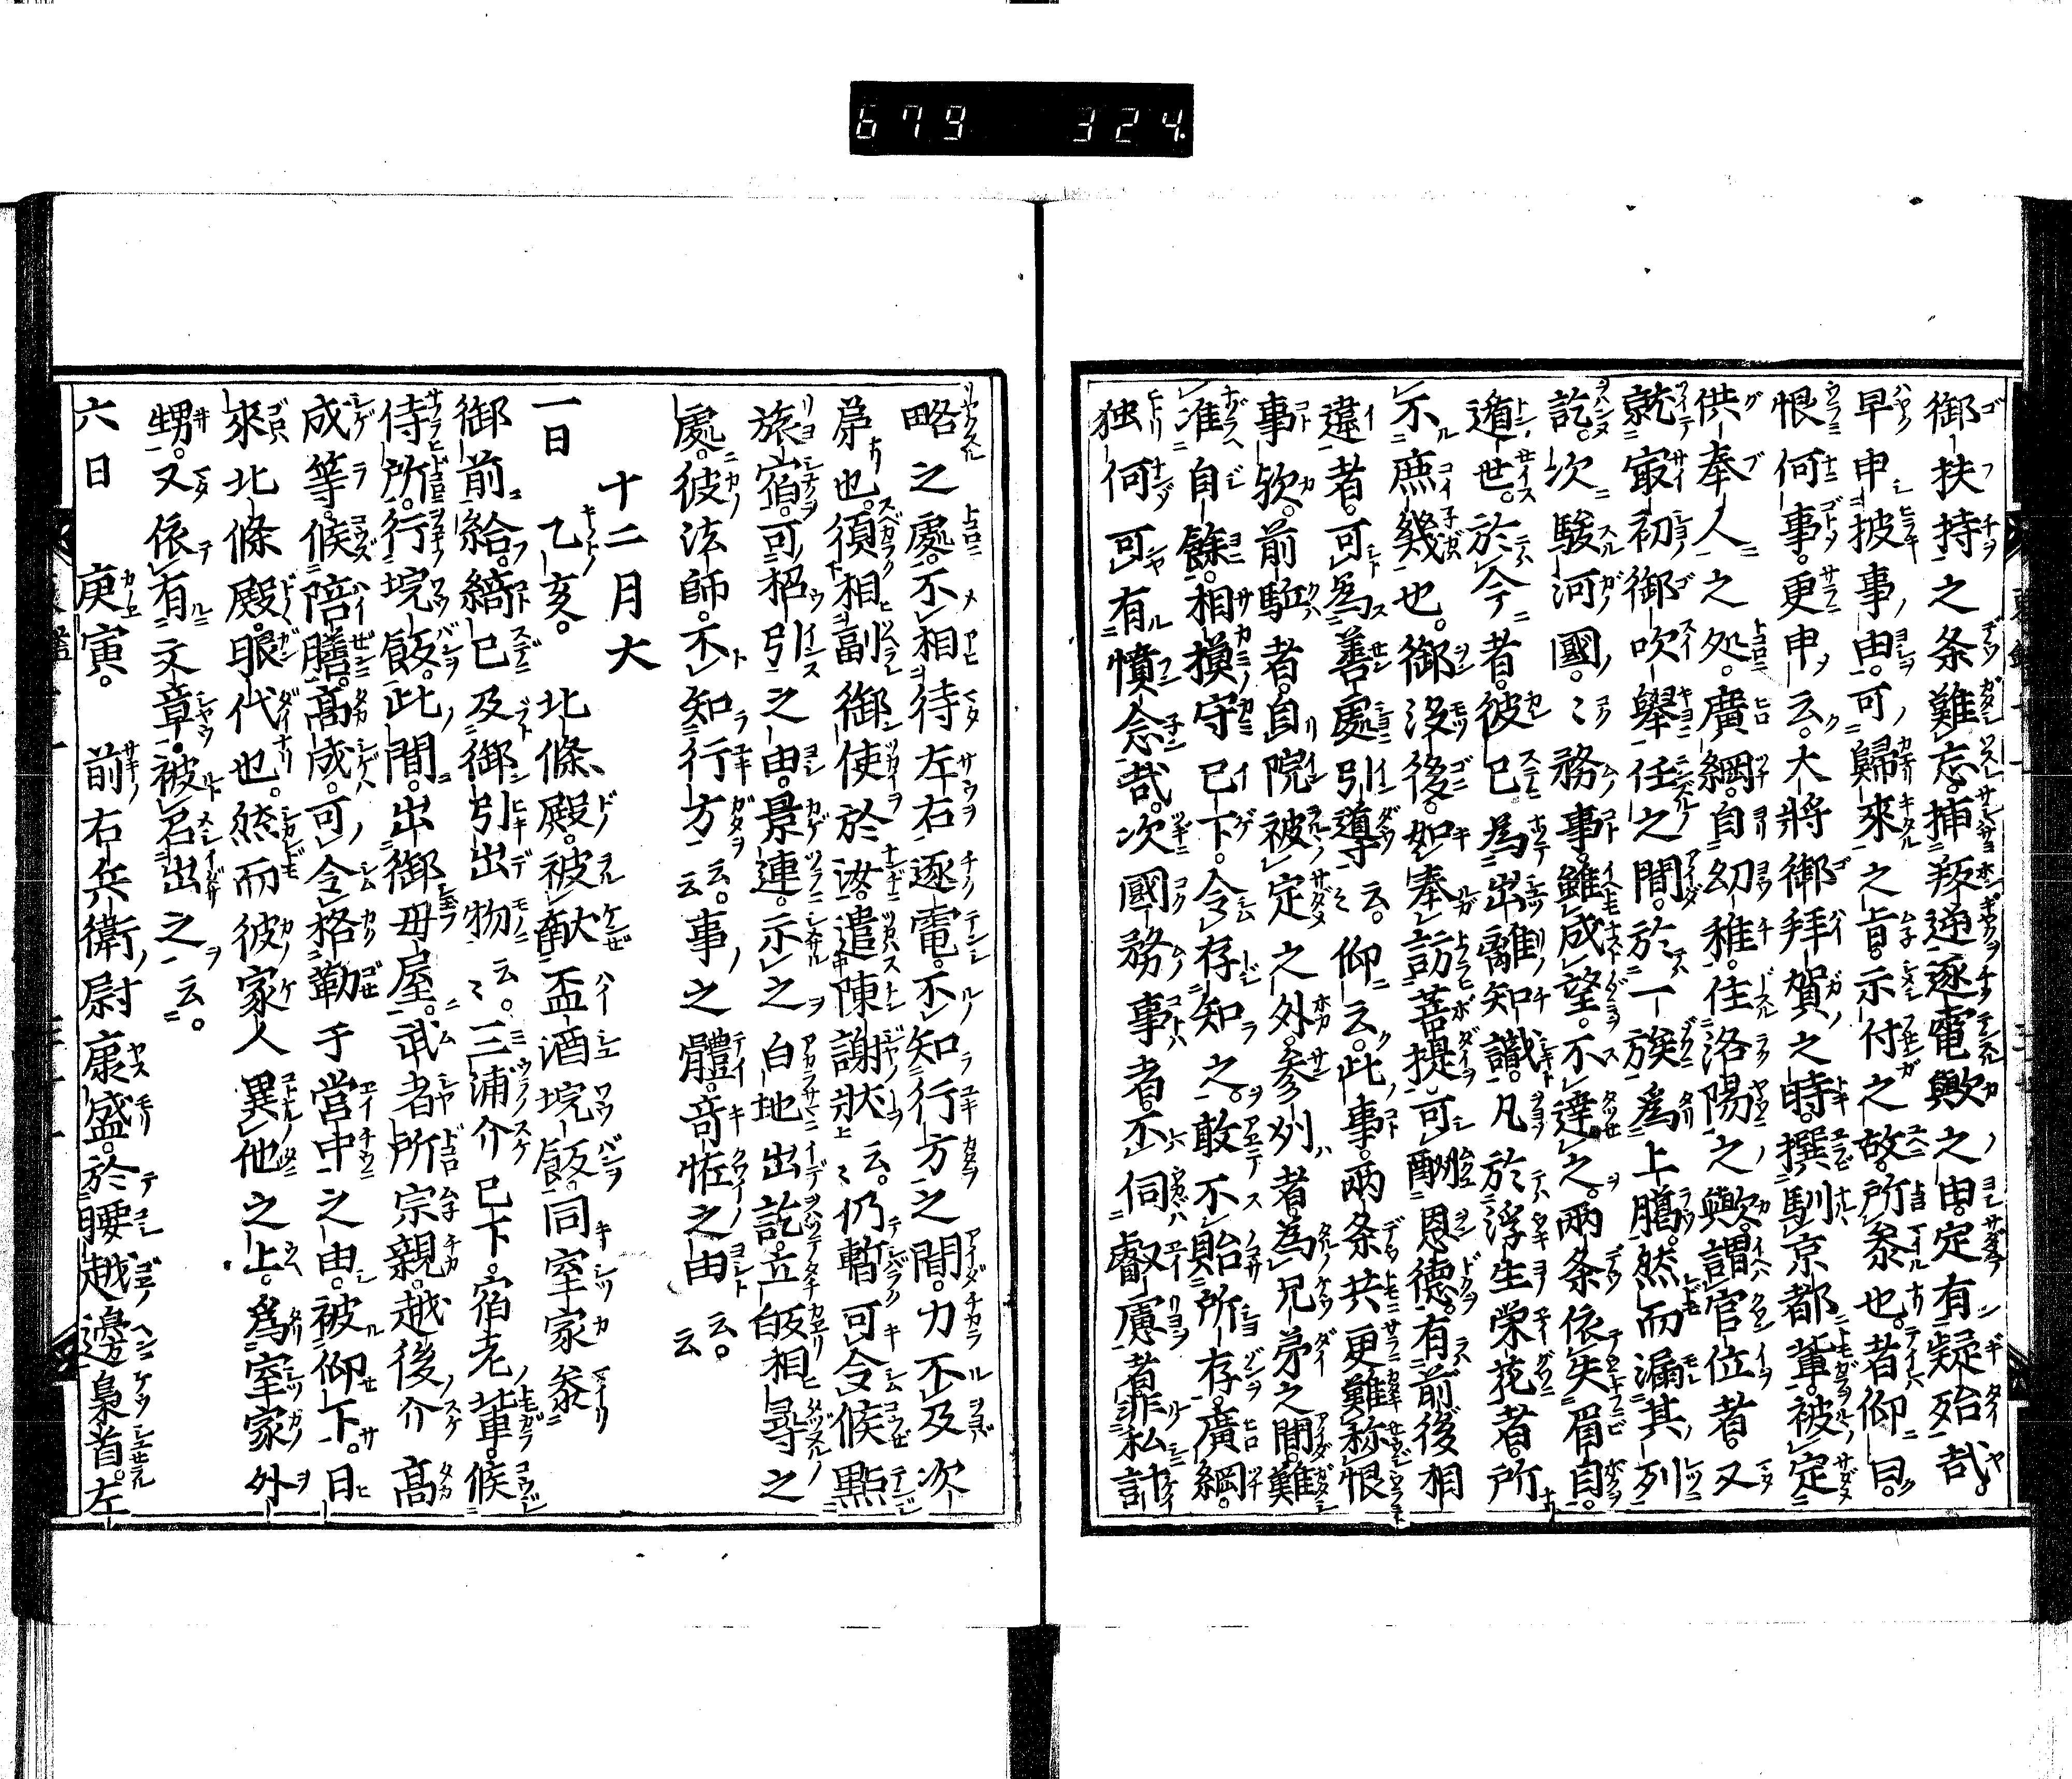 679 324
御扶持之条難忘。捕叛逆逐電歟之由。定有疑殆哉。
早申披事由。可歸来之旨。示付之故。所参也。者仰曰。
恨何事。更申云。大將御拜賀之時。撰馴京都輩。被定
供奉人之処。廣綱。自幼稚。住洛陽之歟。謂官位者。又
就最初御吹擧任之間。於一族為上臈。然而漏其列
訖。次駿河國〻務事。雖成望。不達之。兩条依失眉自。
遁世。於今者。彼已為出離知識。凡於浮生栄花者。所
不庶幾也。御没後。如奉訪菩提。可酬恩德。有前後相
違者。可為善處引導云。仰云。此事。兩条共更難称恨
事欤。前駈者。自院被定之外。参列者。為兄弟之間。難
准自餘。相摸守已下。令存知之。敢不貽所存。廣綱。
独何可有憤念哉。次國務事者。不伺叡慮者。非私計
略之處。不相待左右逐電。不知行方之間。力不及次
第也。須相副御使於汝。遣陳謝狀云〻。仍暫可令候點
旅宿。可招引之由。景連。示之白地出訖。立皈相尋之
處。彼法師。不知行方云云。事之體。奇恠之由云云。
十二月大
一日乙亥。北條殿。被献盃酒垸飯。同室家参
御前給。綺已及御引出物云〻。三浦介已下。宿老輩。候
侍所。行垸飯。此間。出御母屋。武者所宗親。越後介高
成等。候陪膳。高成。可令格勤于営中之由。被仰下。日
來北條殿。眼代也。然而彼家人異他之上。為室家外
甥。又依有文章。被召出之云云。
六日庚寅。前右兵衛尉康盛。於腰越邊梟首。左